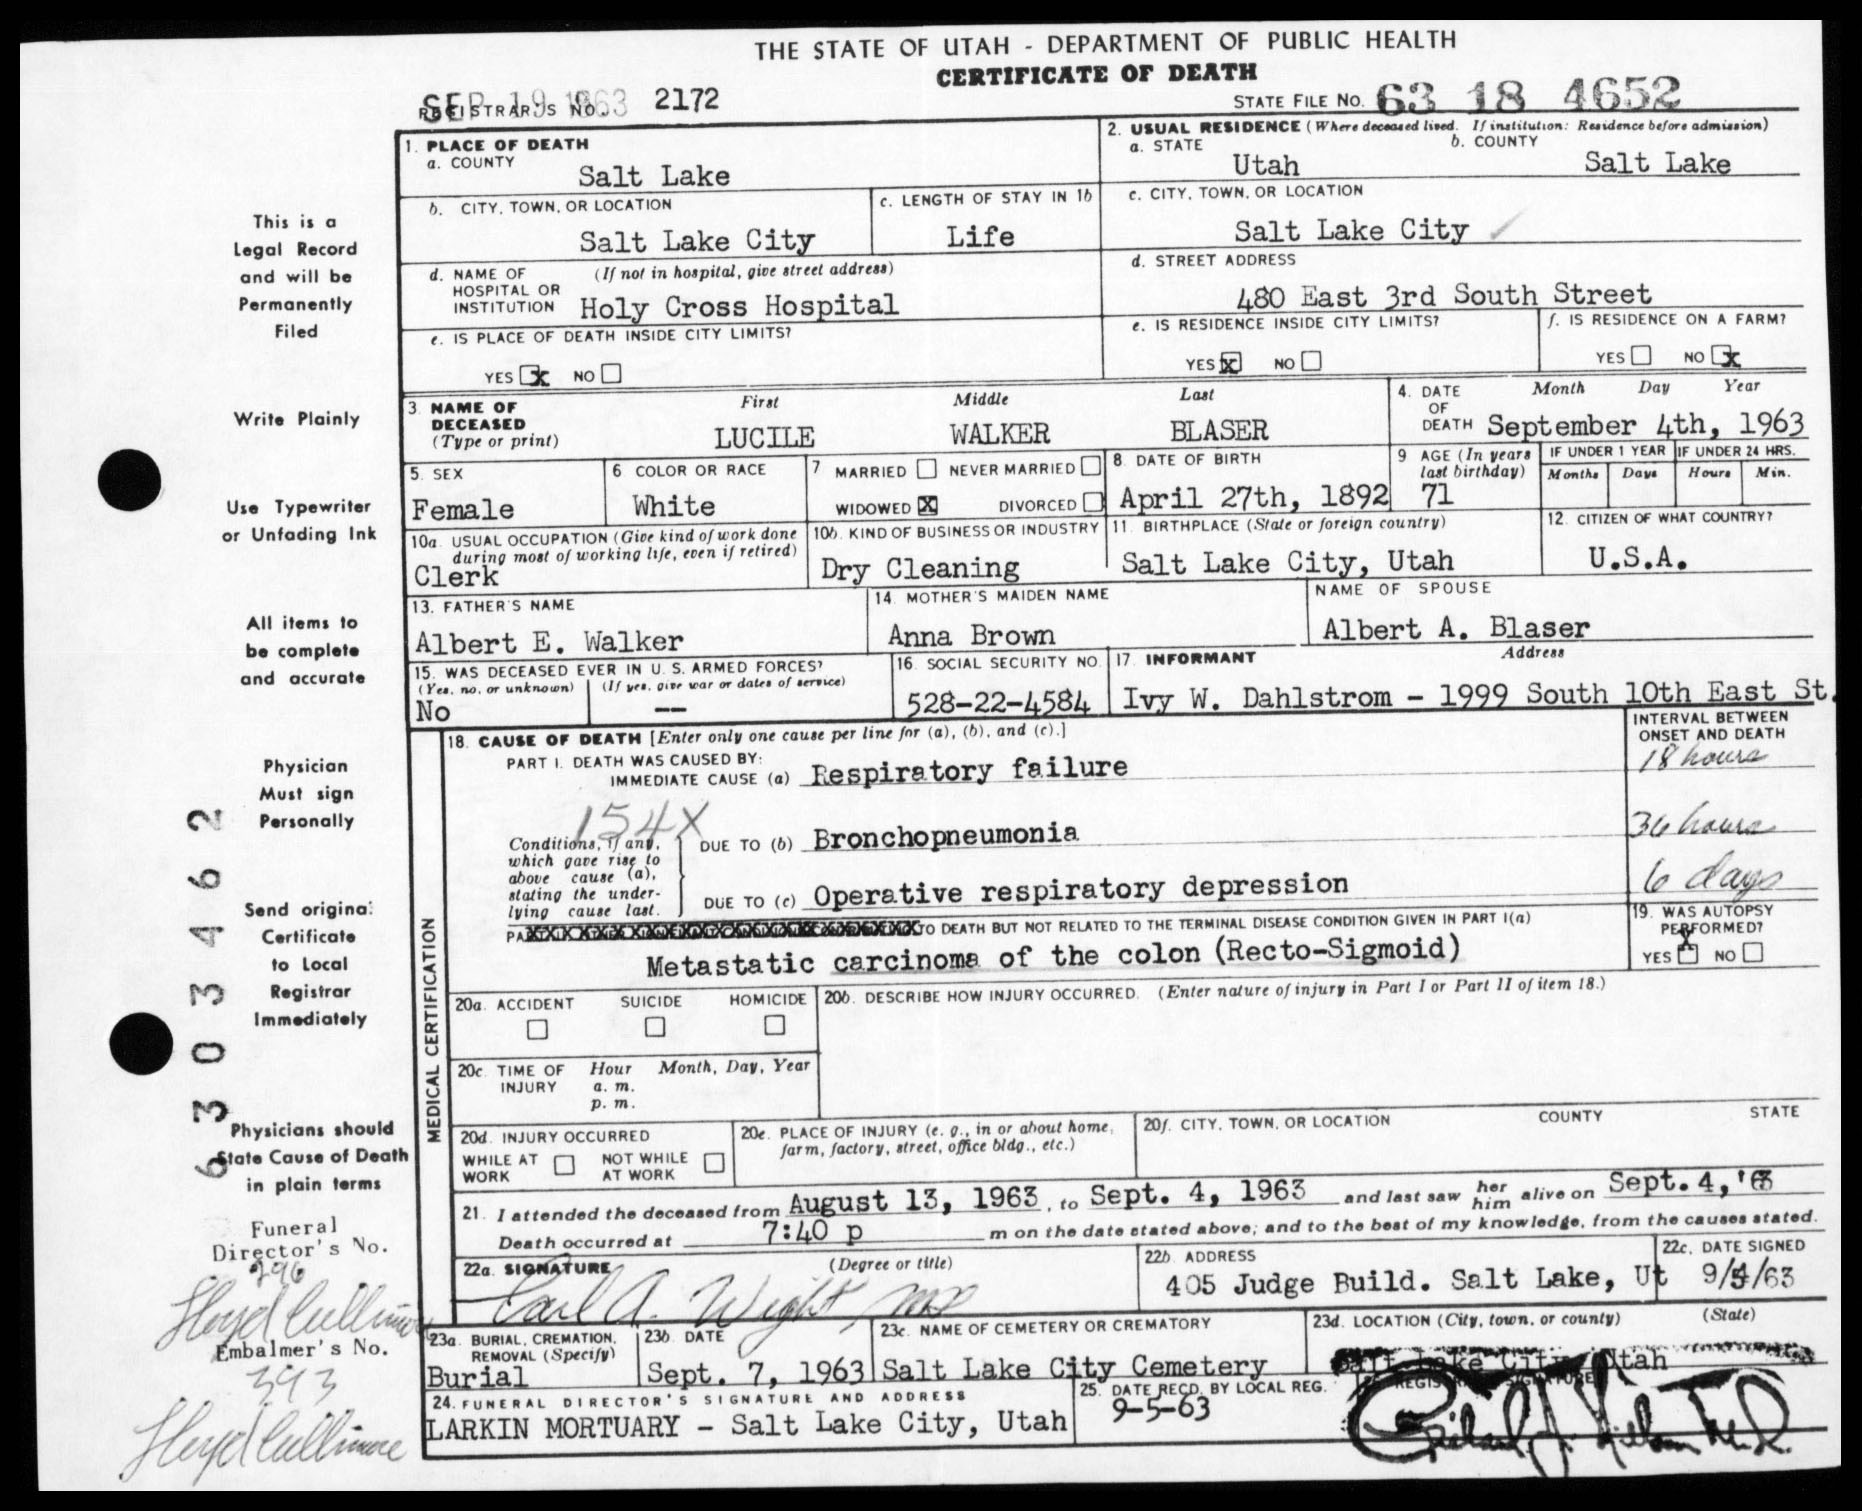 THE STATE OF UTAH - DEPARTMENT OF PUBLIC HEALTH
CERTIFICATE OF DEATH
SEP 19 1963
REGISTRAR'S NO. 2172
STATE FILE NO. 63 18 4652
This is a
Legal Record
and will be
Permanently
Filed
Write Plainly
Use Typewriter
or Unfading Ink
All items to
be complete
and accurate
Physician
Must sign
Personally
Send original
Certificate
to Local
Registrar
Immediately
Physicians should
State Cause of Death
in plain terms
6303462
Funeral
Director's No.
296
Floyd Cullimore
Embalmer's No.
393
Floyd Cullimore
1. PLACE OF DEATH
a. COUNTY
Salt Lake
b. CITY, TOWN, OR LOCATION
Salt Lake City
c. LENGTH OF STAY IN 1b
Life
d. NAME OF (If not in hospital, give street address)
HOSPITAL OR
INSTITUTION Holy Cross Hospital
e. IS PLACE OF DEATH INSIDE CITY LIMITS?
YES X NO
2. USUAL RESIDENCE (Where deceased lived. If institution: Residence before admission)
a. STATE
Utah
b. COUNTY
Salt Lake
c. CITY, TOWN, OR LOCATION
Salt Lake City
d. STREET ADDRESS
480 East 3rd South Street
e. IS RESIDENCE INSIDE CITY LIMITS?
YES X NO
f. IS RESIDENCE ON A FARM?
YES NO X
3. NAME OF
DECEASED
(Type or print)
First Middle Last
LUCILE WALKER BLASER
4. DATE Month Day Year
OF
DEATH September 4th, 1963
5. SEX
Female
6 COLOR OR RACE
White
7 MARRIED NEVER MARRIED
WIDOWED X DIVORCED
8 DATE OF BIRTH
April 27th, 1892
9 AGE (In years
last birthday)
71
IF UNDER 1 YEAR
Months Days
IF UNDER 24 HRS.
Hours Min.
10a. USUAL OCCUPATION (Give kind of work done
during most of working life, even if retired)
Clerk
10b. KIND OF BUSINESS OR INDUSTRY
Dry Cleaning
11. BIRTHPLACE (State or foreign country)
Salt Lake City, Utah
12. CITIZEN OF WHAT COUNTRY?
U.S.A.
13. FATHER'S NAME
Albert E. Walker
14. MOTHER'S MAIDEN NAME
Anna Brown
NAME OF SPOUSE
Albert A. Blaser
15. WAS DECEASED EVER IN U. S. ARMED FORCES?
(Yes, no, or unknown) (If yes, give war or dates of service)
No --
16. SOCIAL SECURITY NO.
528-22-4584
17. INFORMANT Address
Ivy W. Dahlstrom - 1999 South 10th East St.
MEDICAL CERTIFICATION
18. CAUSE OF DEATH [Enter only one cause per line for (a), (b), and (c).]
INTERVAL BETWEEN
ONSET AND DEATH
PART I. DEATH WAS CAUSED BY:
IMMEDIATE CAUSE (a) Respiratory failure
18 hours
154X
Conditions, if any,
which gave rise to
above cause (a),
stating the under-
lying cause last.
DUE TO (b) Bronchopneumonia
36 hours
DUE TO (c) Operative respiratory depression
6 days
TO DEATH BUT NOT RELATED TO THE TERMINAL DISEASE CONDITION GIVEN IN PART I(a)
Metastatic carcinoma of the colon (Recto-Sigmoid)
19. WAS AUTOPSY
PERFORMED?
YES X NO
20a. ACCIDENT SUICIDE HOMICIDE
20b. DESCRIBE HOW INJURY OCCURRED. (Enter nature of injury in Part I or Part II of item 18.)
20c. TIME OF Hour Month, Day, Year
INJURY a. m.
p. m.
20d. INJURY OCCURRED
WHILE AT WORK NOT WHILE AT WORK
20e. PLACE OF INJURY (e. g., in or about home,
farm, factory, street, office bldg., etc.)
20f. CITY, TOWN, OR LOCATION COUNTY STATE
21. I attended the deceased from August 13, 1963, to Sept. 4, 1963 and last saw her him alive on Sept. 4, '63
Death occurred at 7:40 p m on the date stated above; and to the best of my knowledge, from the causes stated.
22a. SIGNATURE (Degree or title)
Carl A. Wight MD
22b. ADDRESS
405 Judge Build. Salt Lake, Ut
22c. DATE SIGNED
9/5/63
23a. BURIAL, CREMATION,
REMOVAL (Specify)
Burial
23b. DATE
Sept. 7, 1963
23c. NAME OF CEMETERY OR CREMATORY
Salt Lake City Cemetery
23d. LOCATION (City, town, or county) (State)
Salt Lake City, Utah
24. FUNERAL DIRECTOR'S SIGNATURE AND ADDRESS
LARKIN MORTUARY - Salt Lake City, Utah
25. DATE RECD. BY LOCAL REG.
9-5-63
REGISTRAR'S SIGNATURE